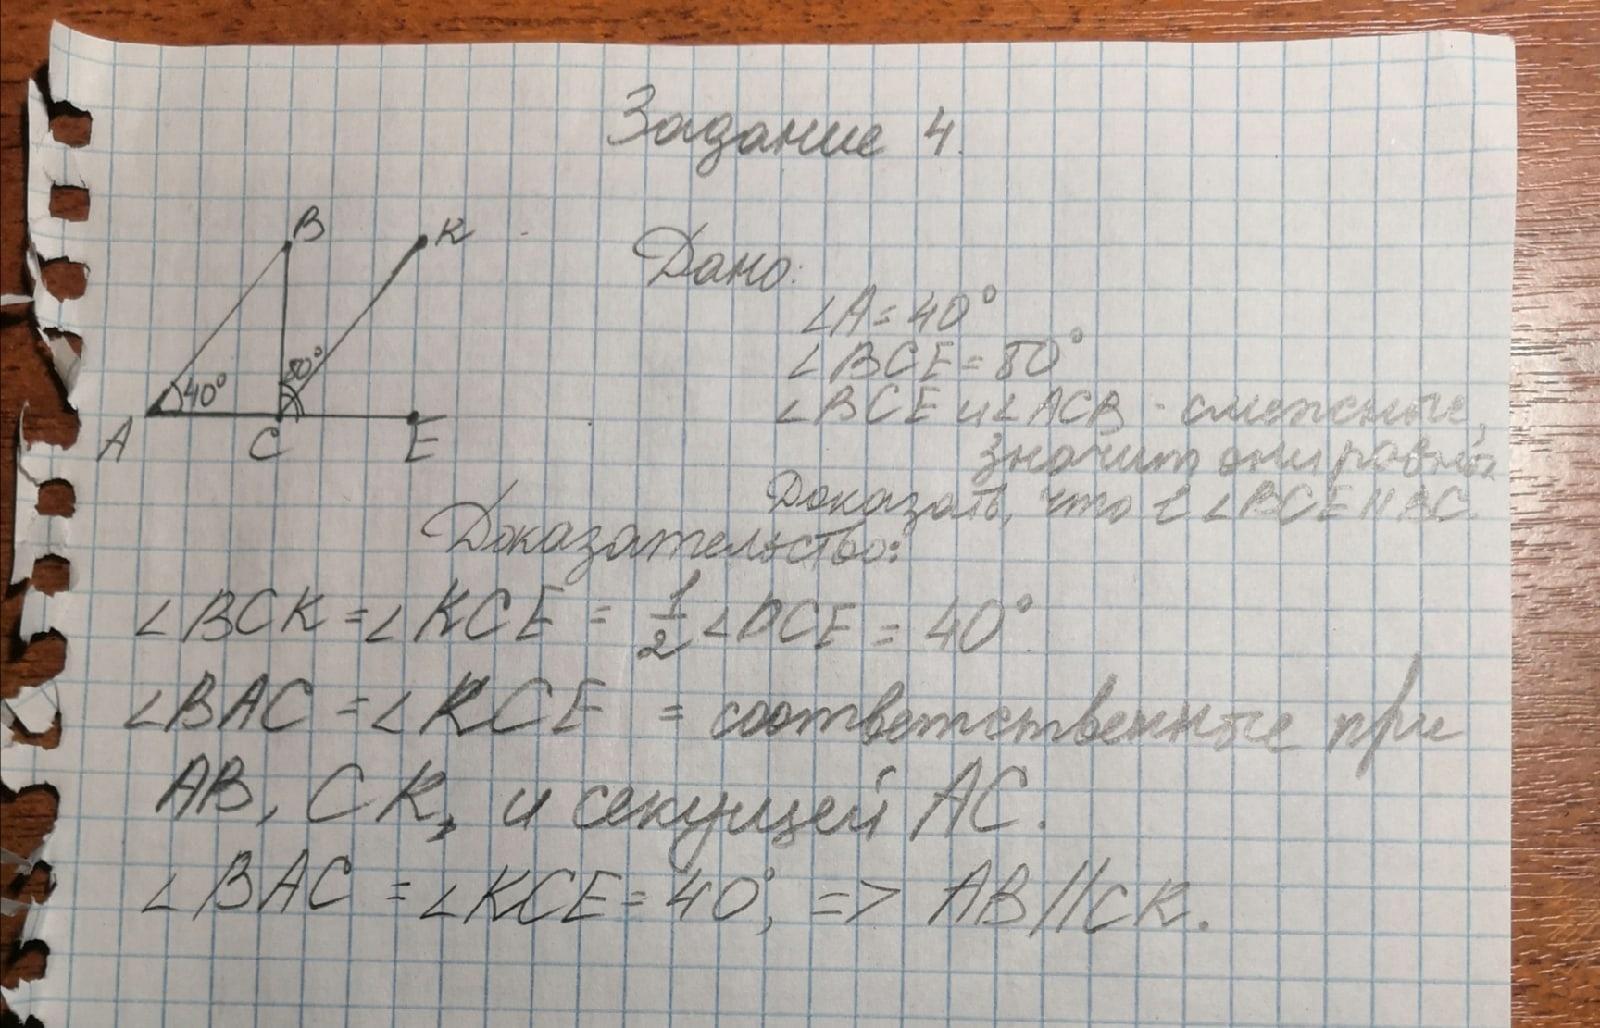 Задание 4.
B
K
80°
40°
A
C
E
Дано:
∠A = 40°
∠BCE = 80°
∠BCE и ∠ACB - смежные,
значит они равны
Доказать, что ∠BCE || BC.
Доказательство:
∠BCK = ∠KCE = 1/2 ∠BCE = 40°
∠BAC = ∠KCE = соответственные при
AB, CK, и секущей AC.
∠BAC = ∠KCE = 40°, => AB//CK.